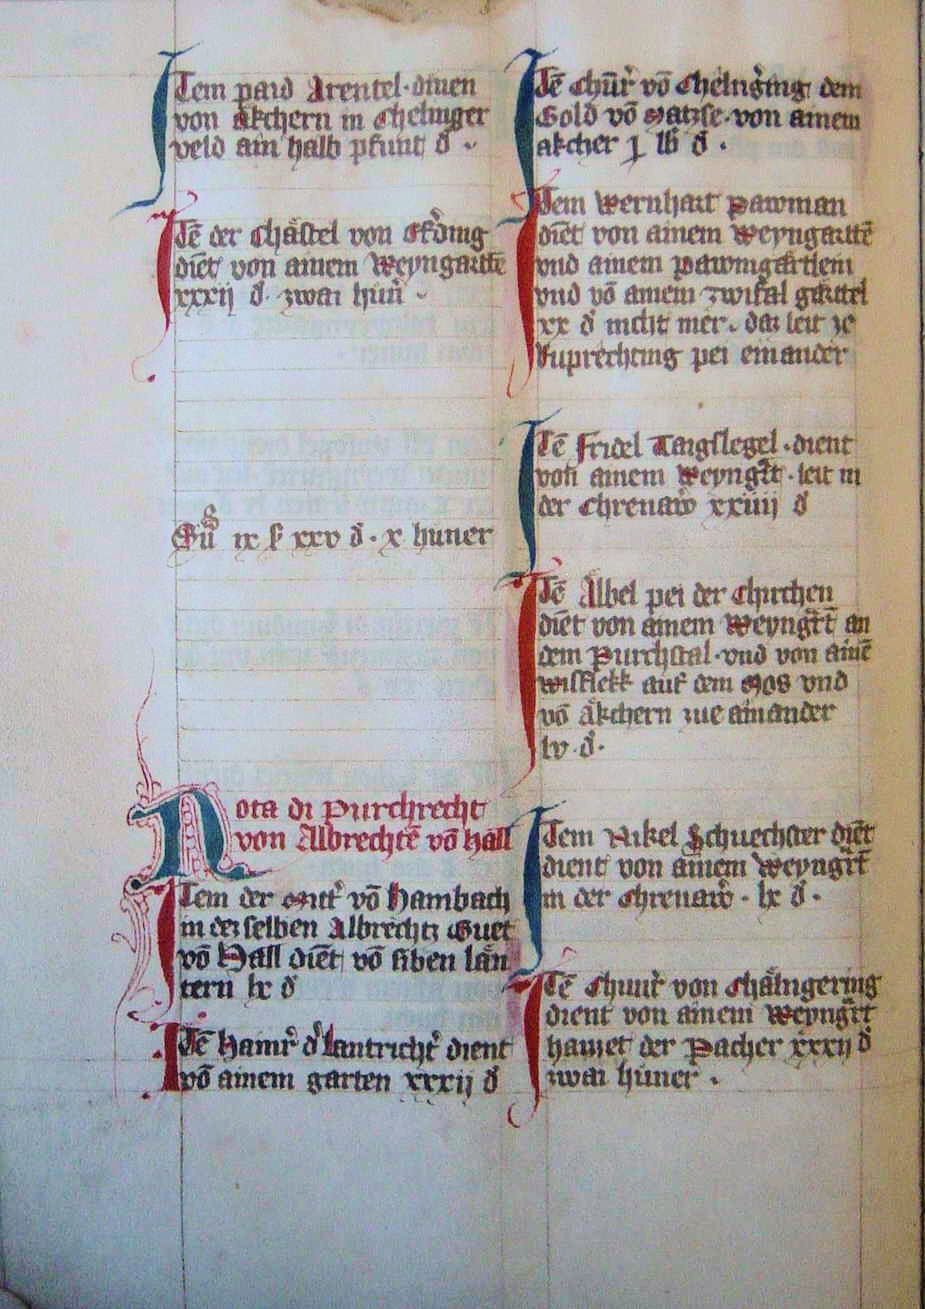 Item paid Arentel · dinen
von åkchern in Chelinger
veld ain halb pfunt d̄
Itē der Chåstel von
diēt von ainem Weyngarttē
xxxij d̄ · zwai hůn̄
Sū ix ꝉ xxv d̄ · x hůner
Nota di Purchrecht
von Albrechtē vō Hall
Item der vō Hambach
in derselben Albrechtz Guet
vō Hall diēt vō siben lån
tern lx d̄
Itē Hainr̄ d̾ Lantricht̾ dient
vō ainem garten xxxij d̄
Itē Chūr̄ vō dem
Gold vō Matzse · von ainem
akcher j lb d̄ ·
Item Wernhart Pawman
diēt von ainem Weyngarttē
vnd ainem Pawmgårtlein
vnd vō ainem zwikal garttel
xx d̄ nicht mer · daz leit ze
Ruprechting pei einander
Itē Fridel Taigslegel · dient
von ainem Weyngt̄t · leit in
der Chrenaw xxiiij d̄
Itē Albel pei der Chirchen
diēt von ainem Weyngt̄t an
dem Purchstal · vnd von ainē
wisflekk auf dem Mos vnd
vō åkchern zue ainander
lv · d̄ ·
Item Nikel Schuechster diēt
dient von ainem Weyngt̄t
in der Chrenaw · lx d̄ ·
Itē Chunr̄ von Chålngering
dient von ainem Weyngt̄t
haizzet der Pacher xxxij d̄
zwai hůner ·